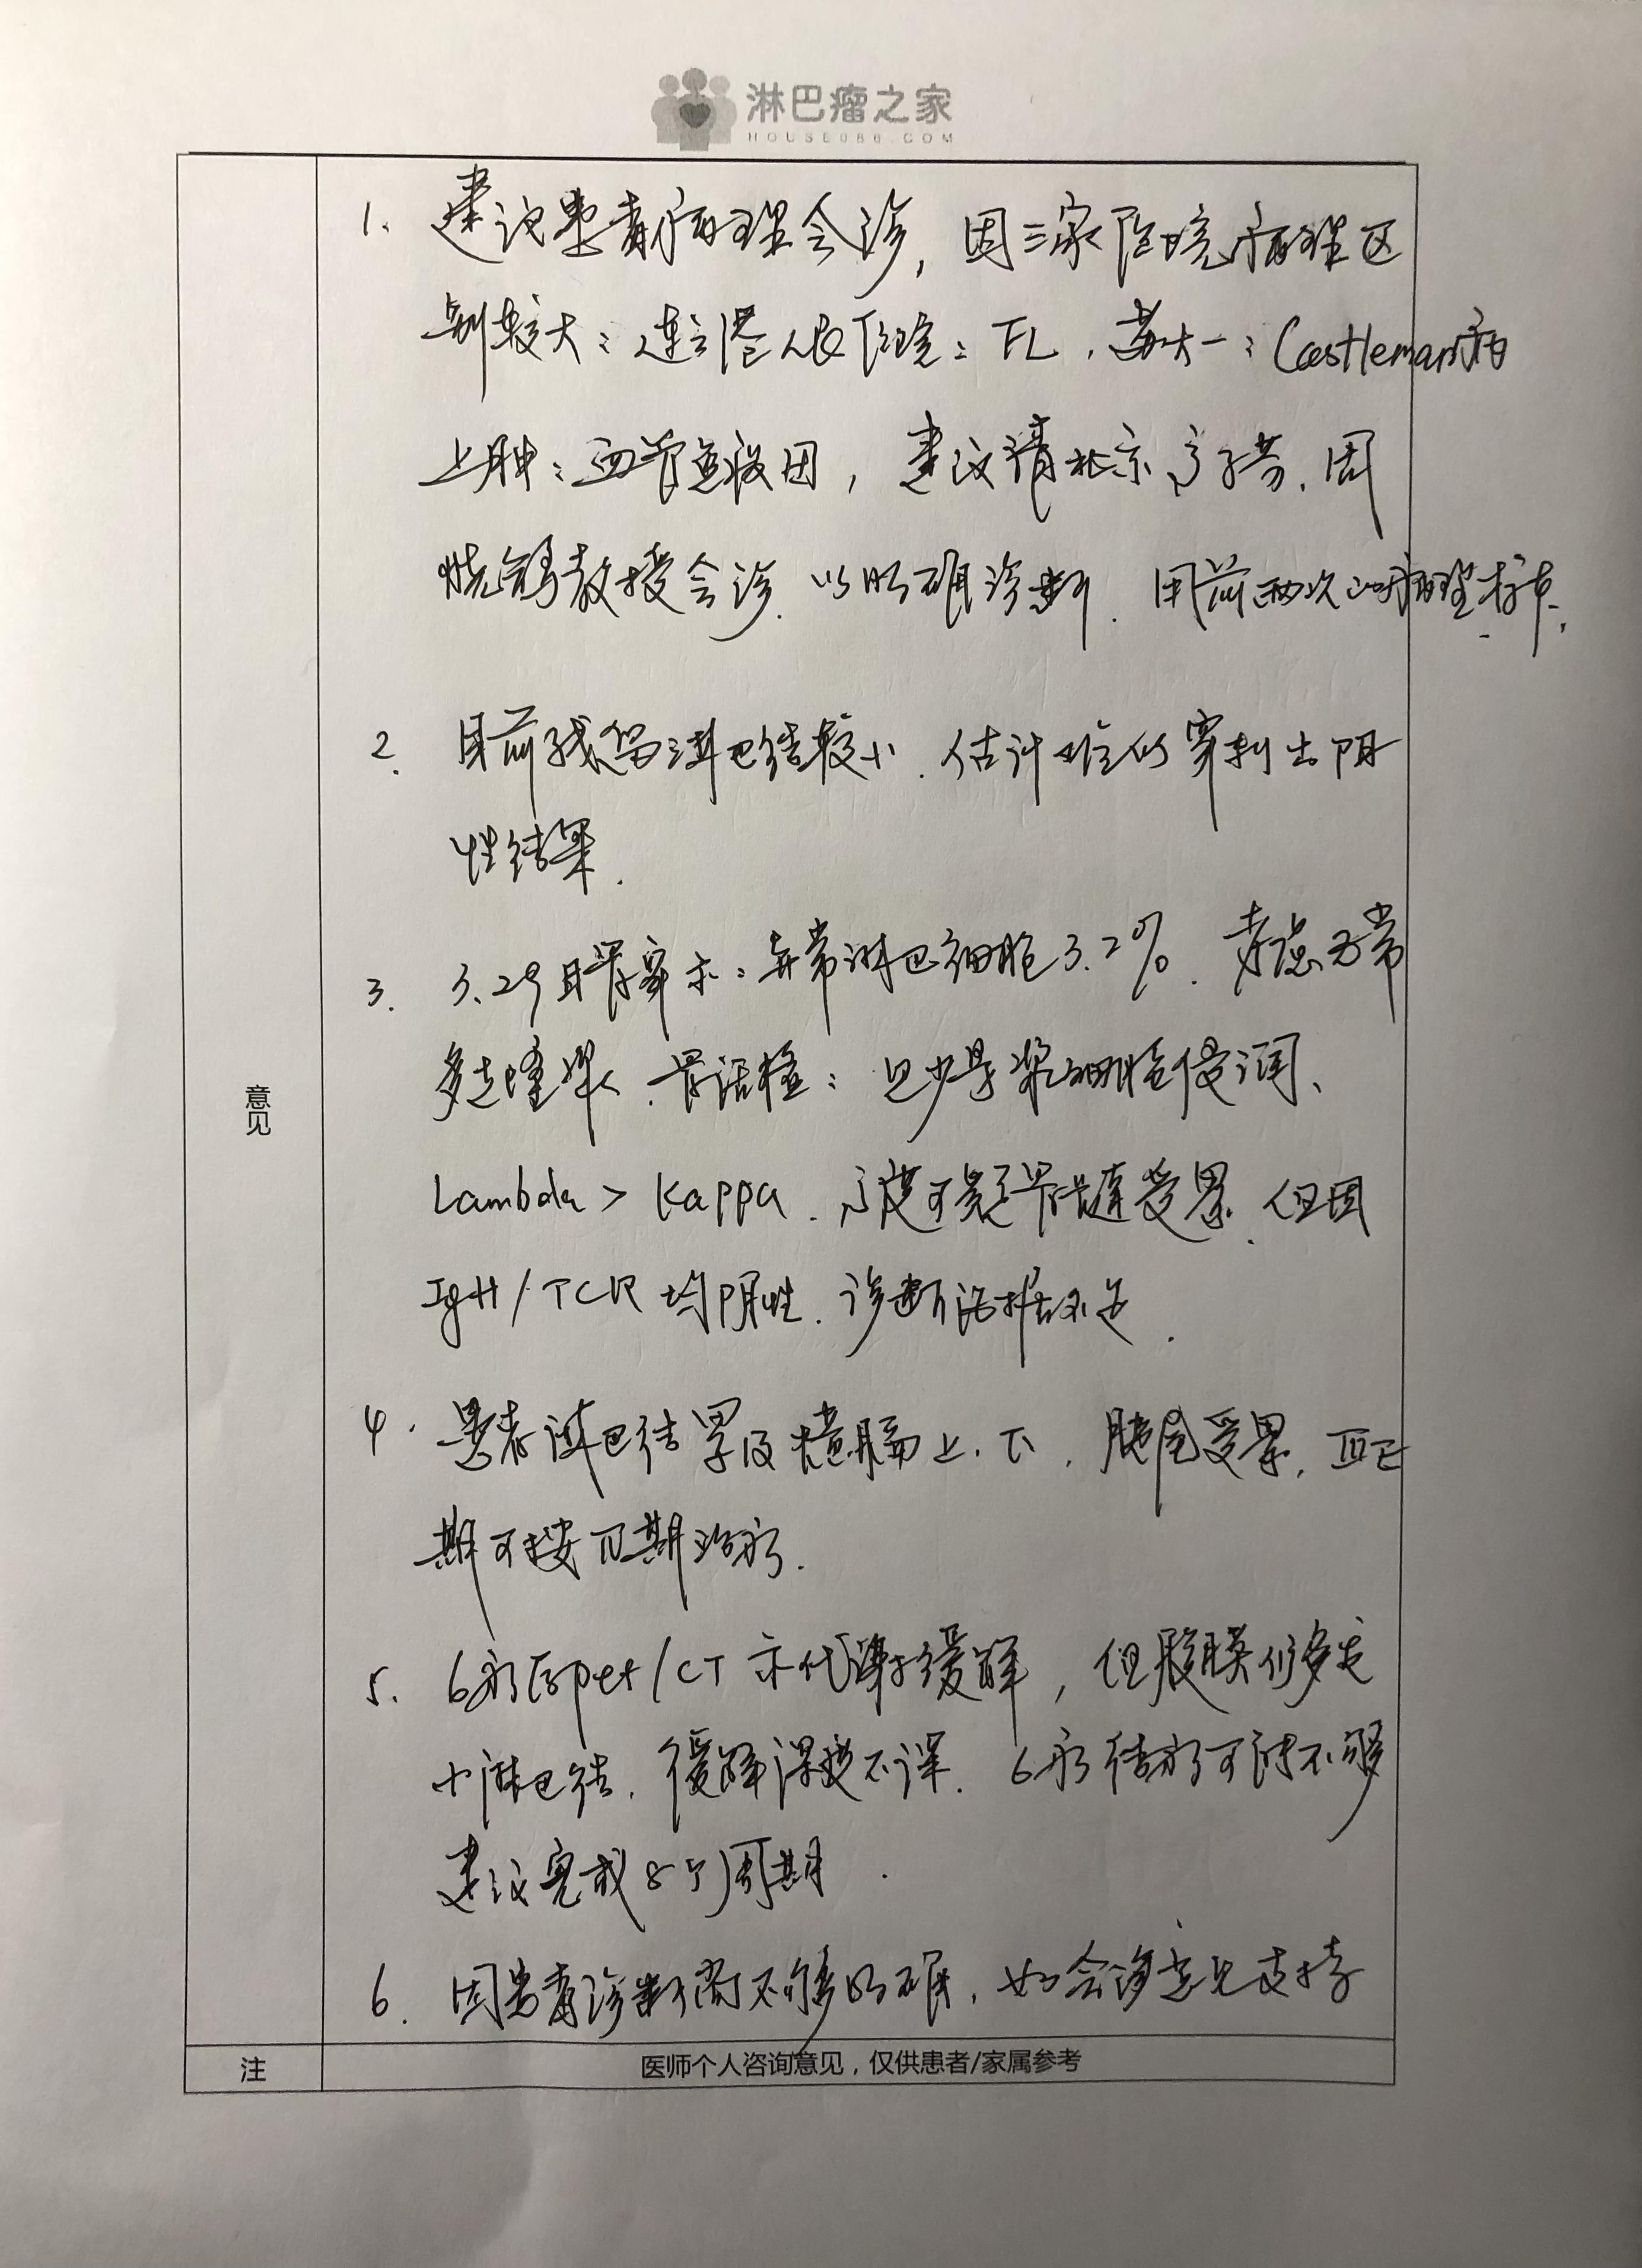 淋巴瘤之家
HOUSE086.COM
意见
1. 建议患者病理会诊，因三家医院病理区
别较大：连云港人民医院：FL，苏大一：Castleman病
上肿：血管免疫母，建议请北京高子芬、周
小鸽教授会诊，以明确诊断，用前两次的病理标本。
2. 目前残留淋巴结较小，估计难以穿刺出阳
性结果.
3. 3.29日骨穿示：异常淋巴细胞3.2%，考虑
骨活检：见少量浆细胞浸润、
Lambda > Kappa，高度可疑骨髓受累，但因
IgH/TCR均阴性，诊断证据不足.
4. 患者淋巴结累及横膈上、下，脾受累，III
期可按IV期治疗.
5. 6疗后pet/CT示代谢缓解，但腹膜仍多发
小淋巴结，缓解深度不深，6疗结疗可能不够
建议完成8个周期.
6. 因患者诊断尚不够明确，如会诊意见支持
注
医师个人咨询意见，仅供患者/家属参考